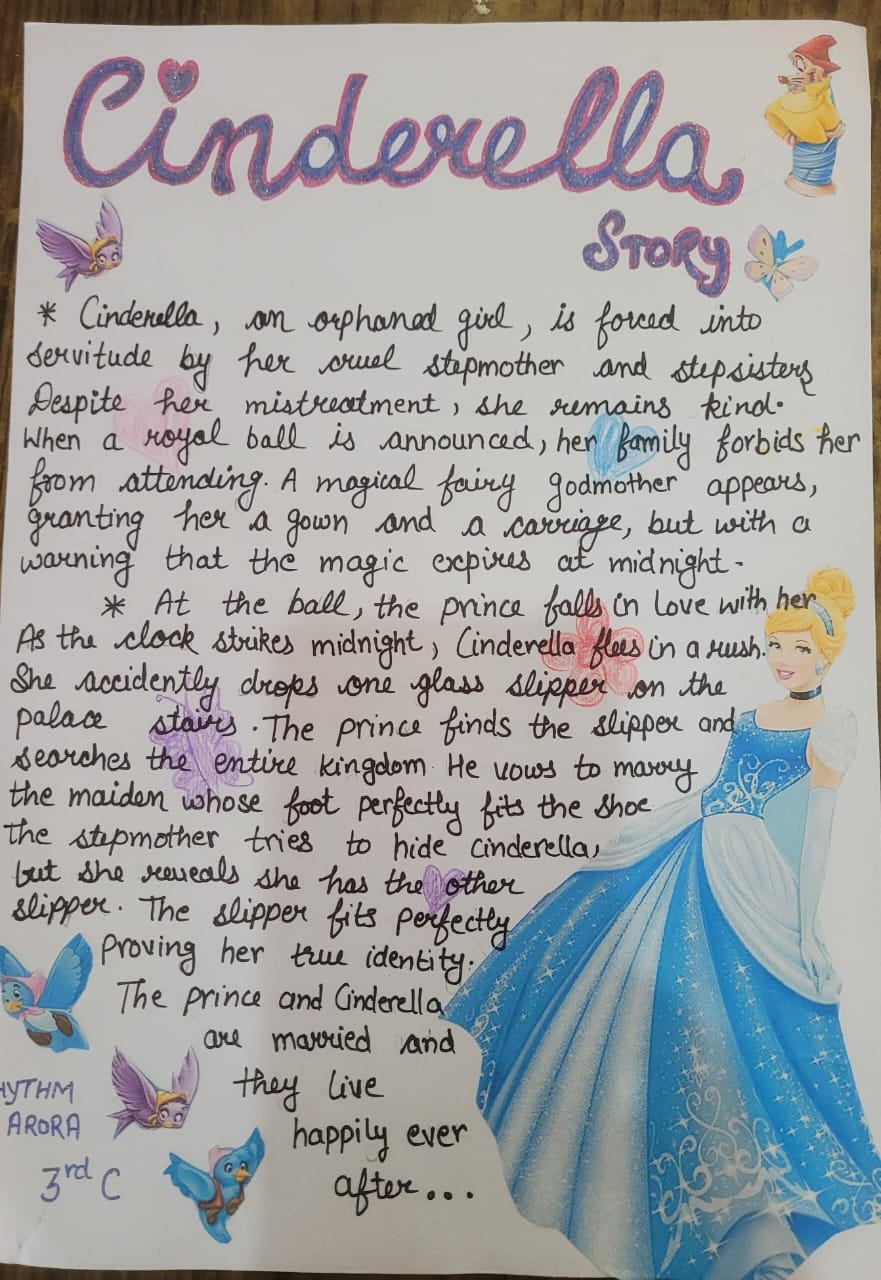 Cinderella
STORY
* Cinderella, an orphaned girl, is forced into
servitude by her cruel stepmother and stepsisters
Despite her mistreatment, she remains kind.
When a royal ball is announced, her family forbids her
from attending. A magical fairy godmother appears,
granting her a gown and a carriage, but with a
warning that the magic expires at midnight.
* At the ball, the prince falls in love with her
As the clock strikes midnight, Cinderella flees in a rush.
She accidently drops one glass slipper on the
palace stairs. The prince finds the slipper and
searches the entire kingdom. He vows to marry
the maiden whose foot perfectly fits the shoe
the stepmother tries to hide cinderella,
but she reveals she has the other
slipper. The slipper fits perfectly
Proving her true identity.
The prince and Cinderella
are married and
they live
happily ever
after...
HYTHM
ARORA
3rd C